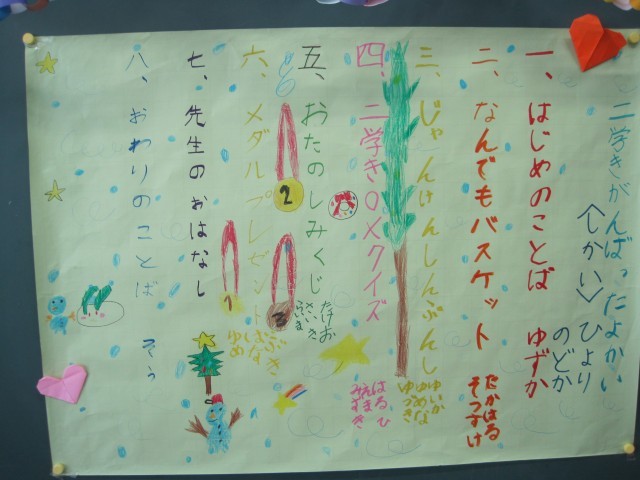 二学きがんばったよかい
〈しかい〉ひより
のどか
一、はじめのことば ゆずか
二、なんでもバスケット たかはる
そうすけ
三、じゃんけんしんぶんし ゆいか
ゆめな
ゆづき
四、二学き○×クイズ はるひ
そま
みずき
五、おたのしみくじ たけお
さいき
六、メダルプレゼント いぶき
ゆめ
七、先生のおはなし
八、おわりのことば そう
2
3
1